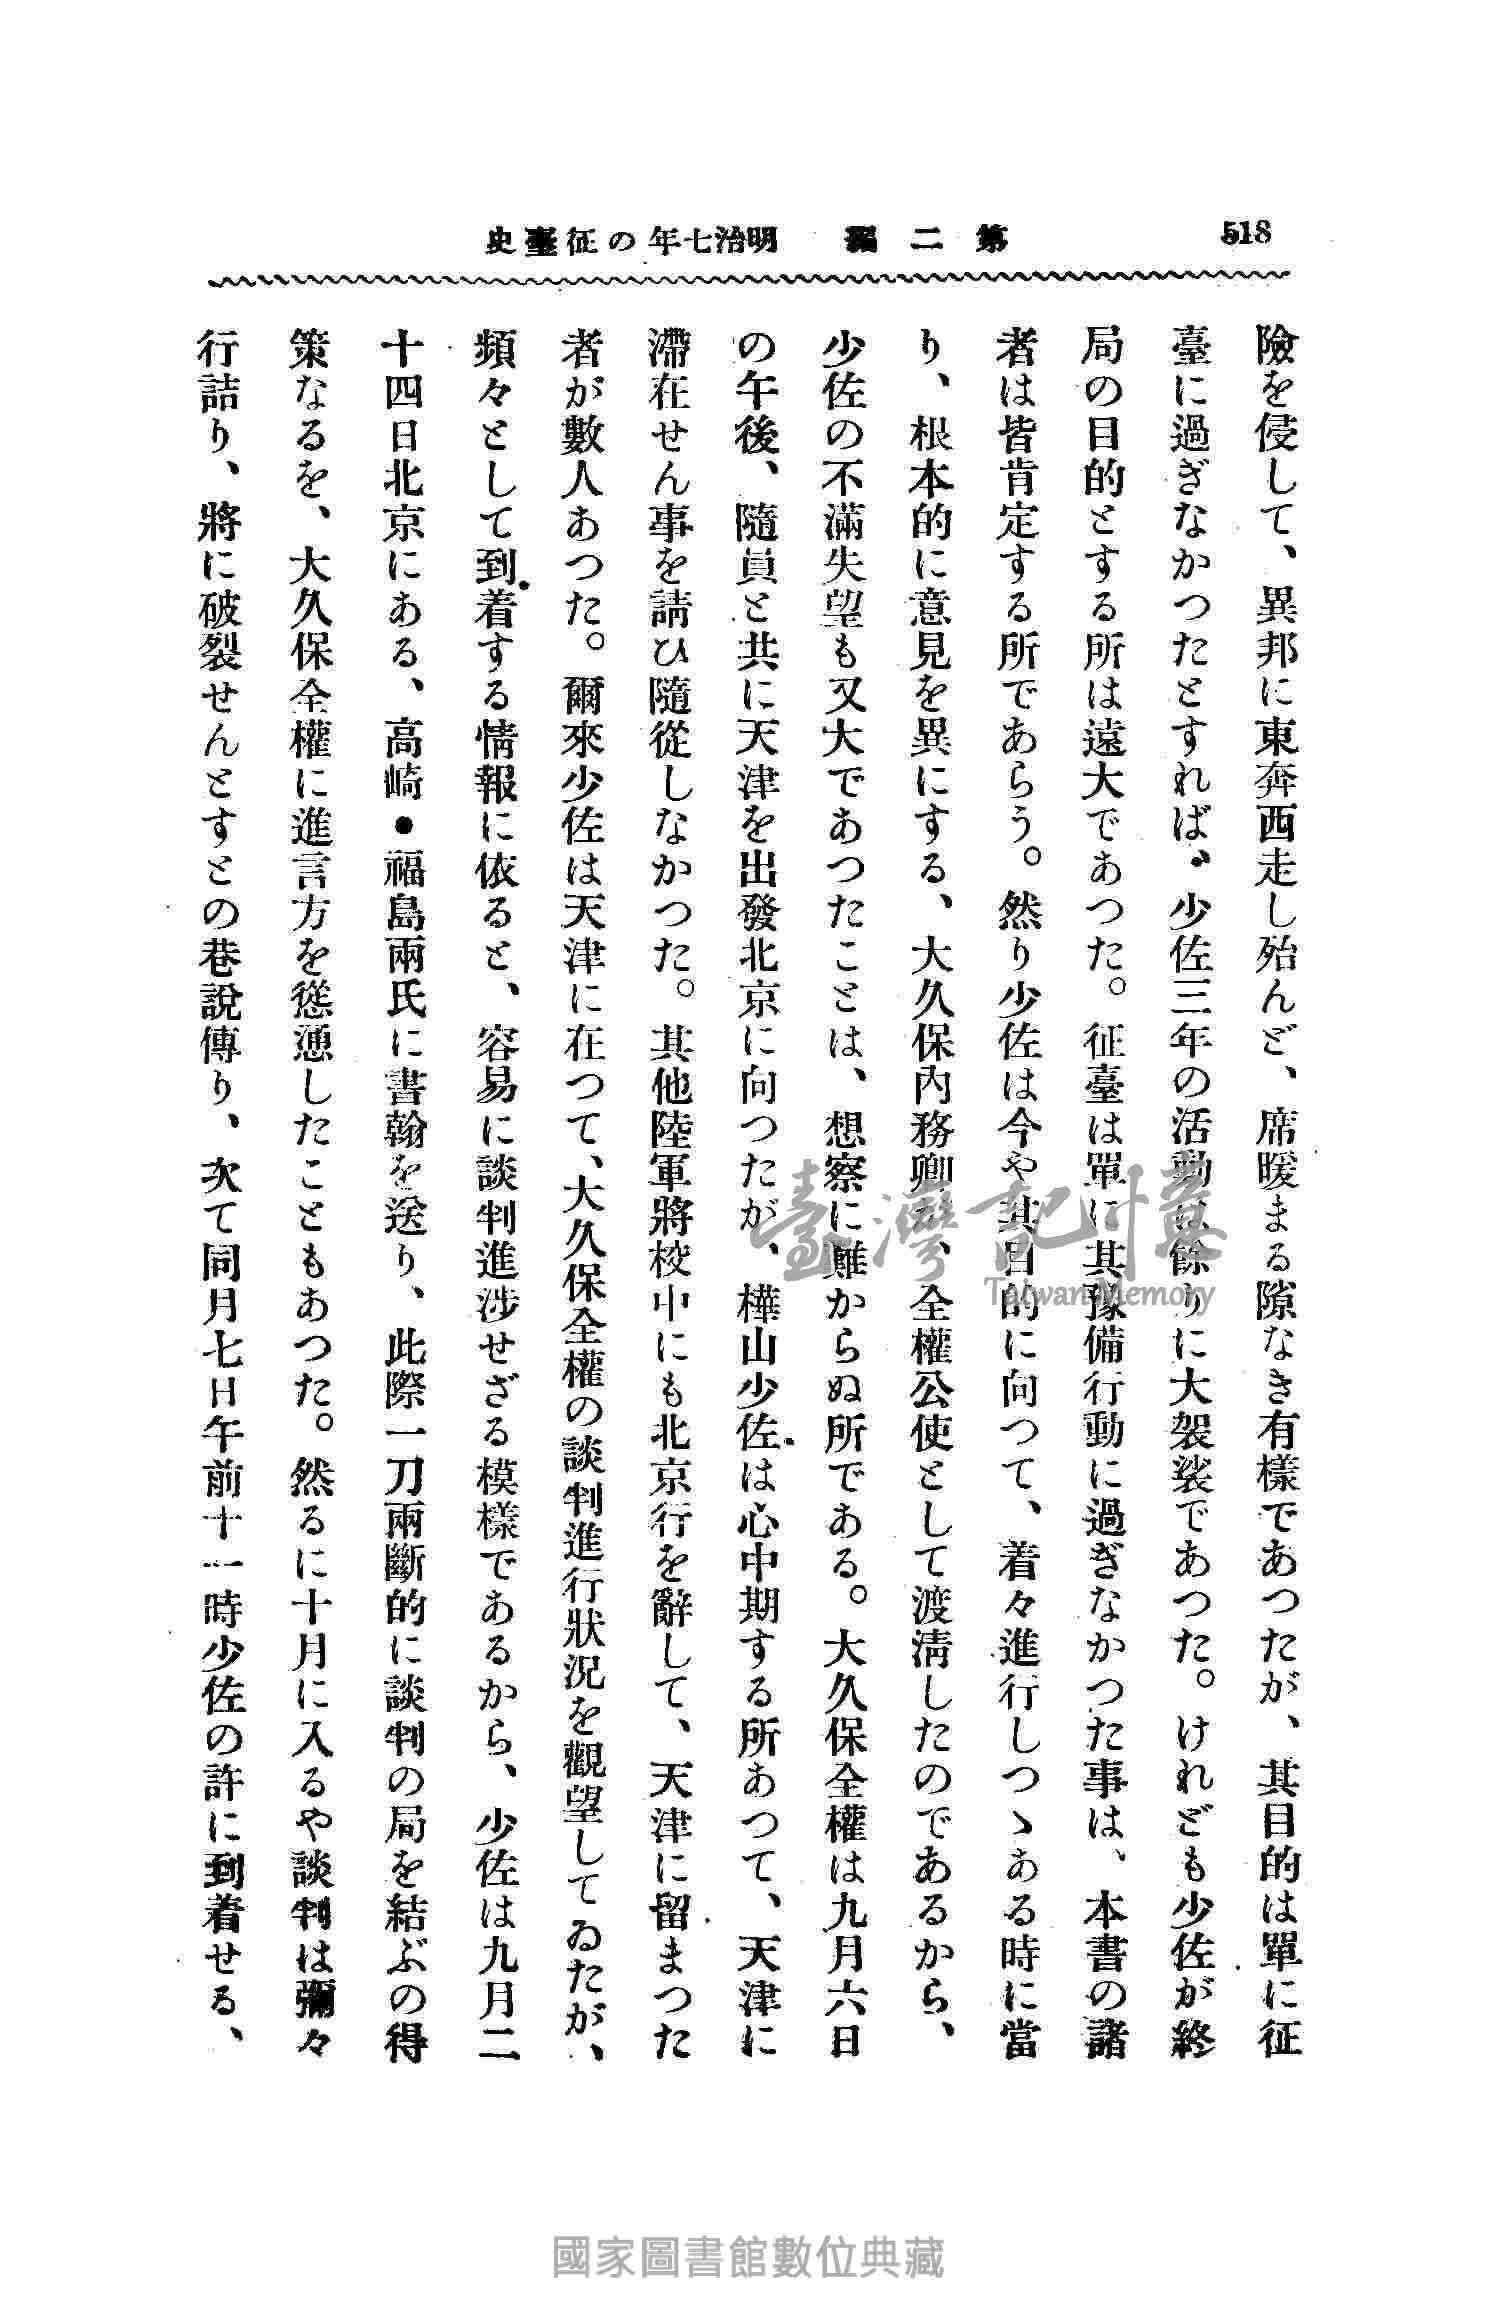 518
第二編　明治七年の征臺史
險を侵して、異邦に東奔西走し殆んど、席暖まる隙なき有樣であつたが、其目的は單に征
臺に過ぎなかつたとすれば、少佐三年の活動は餘りに大袈裟であつた。けれども少佐が終
局の目的とする所は遠大であつた。征臺は單に其豫備行動に過ぎなかつた事は、本書の諸
者は皆肯定する所であらう。然り少佐は今や其目的に向つて、着々進行しつゝある時に當
り、根本的に意見を異にする、大久保內務卿が、全權公使として渡淸したのであるから、
少佐の不滿失望も又大であつたことは、想察に難からぬ所である。大久保全權は九月六日
の午後、隨員と共に天津を出發北京に向つたが、樺山少佐は心中期する所あつて、天津に
滯在せん事を請ひ隨從しなかつた。其他陸軍將校中にも北京行を辭して、天津に留まつた
者が數人あつた。爾來少佐は天津に在つて、大久保全權の談判進行狀況を觀望してゐたが、
頻々として到着する情報に依ると、容易に談判進涉せざる模樣であるから、少佐は九月二
十四日北京にある、高崎●福島兩氏に書翰を送り、此際一刀兩斷的に談判の局を結ぶの得
策なるを、大久保全權に進言方を慫慂したこともあつた。然るに十月に入るや談判は彌々
行詰り、將に破裂せんとすとの巷說傳り、次て同月七日午前十一時少佐の許に到着せる、
臺灣記憶
Taiwan Memory
國家圖書館數位典藏